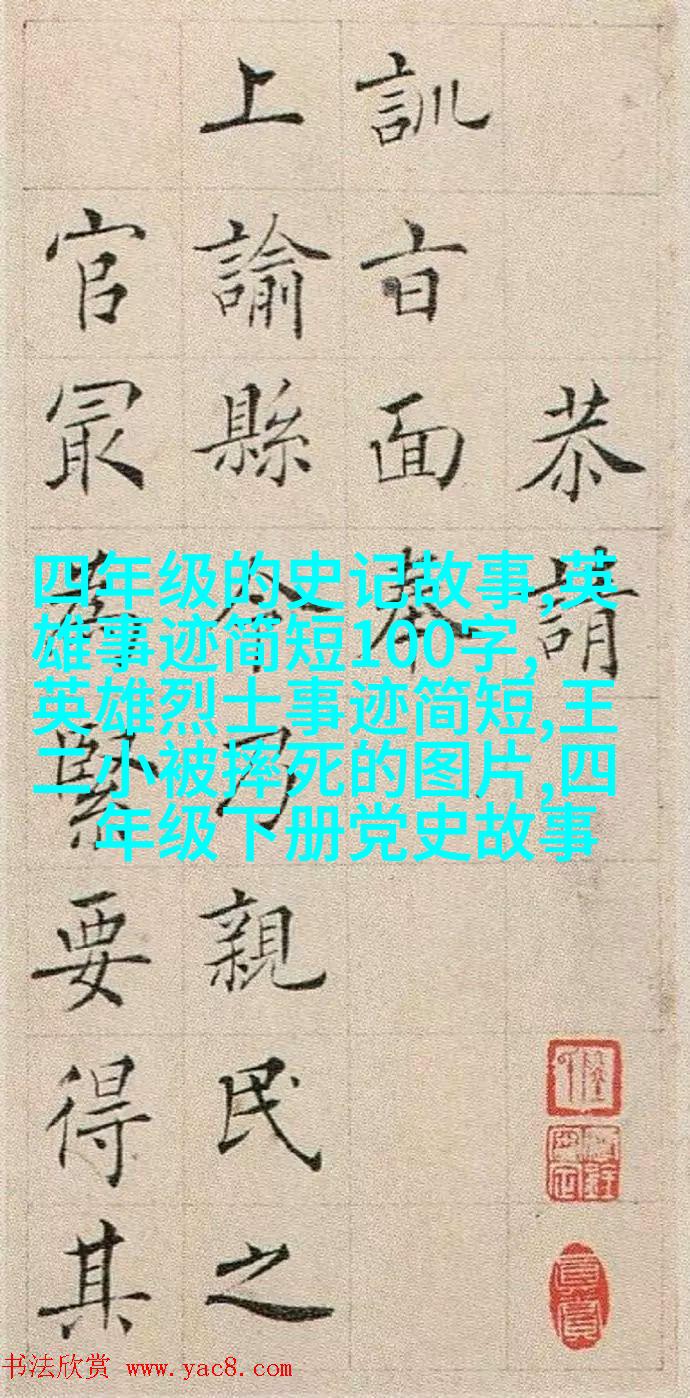 恭請
訓旨面奉
上諭縣令乃親民之
官冣為緊要得其
四年级的史记故事,英
雄事迹简短100字,
英雄烈士事迹简短,王
二小被摔死的图片,四
年级下册党史故事
书法欣赏 www.yac8.com